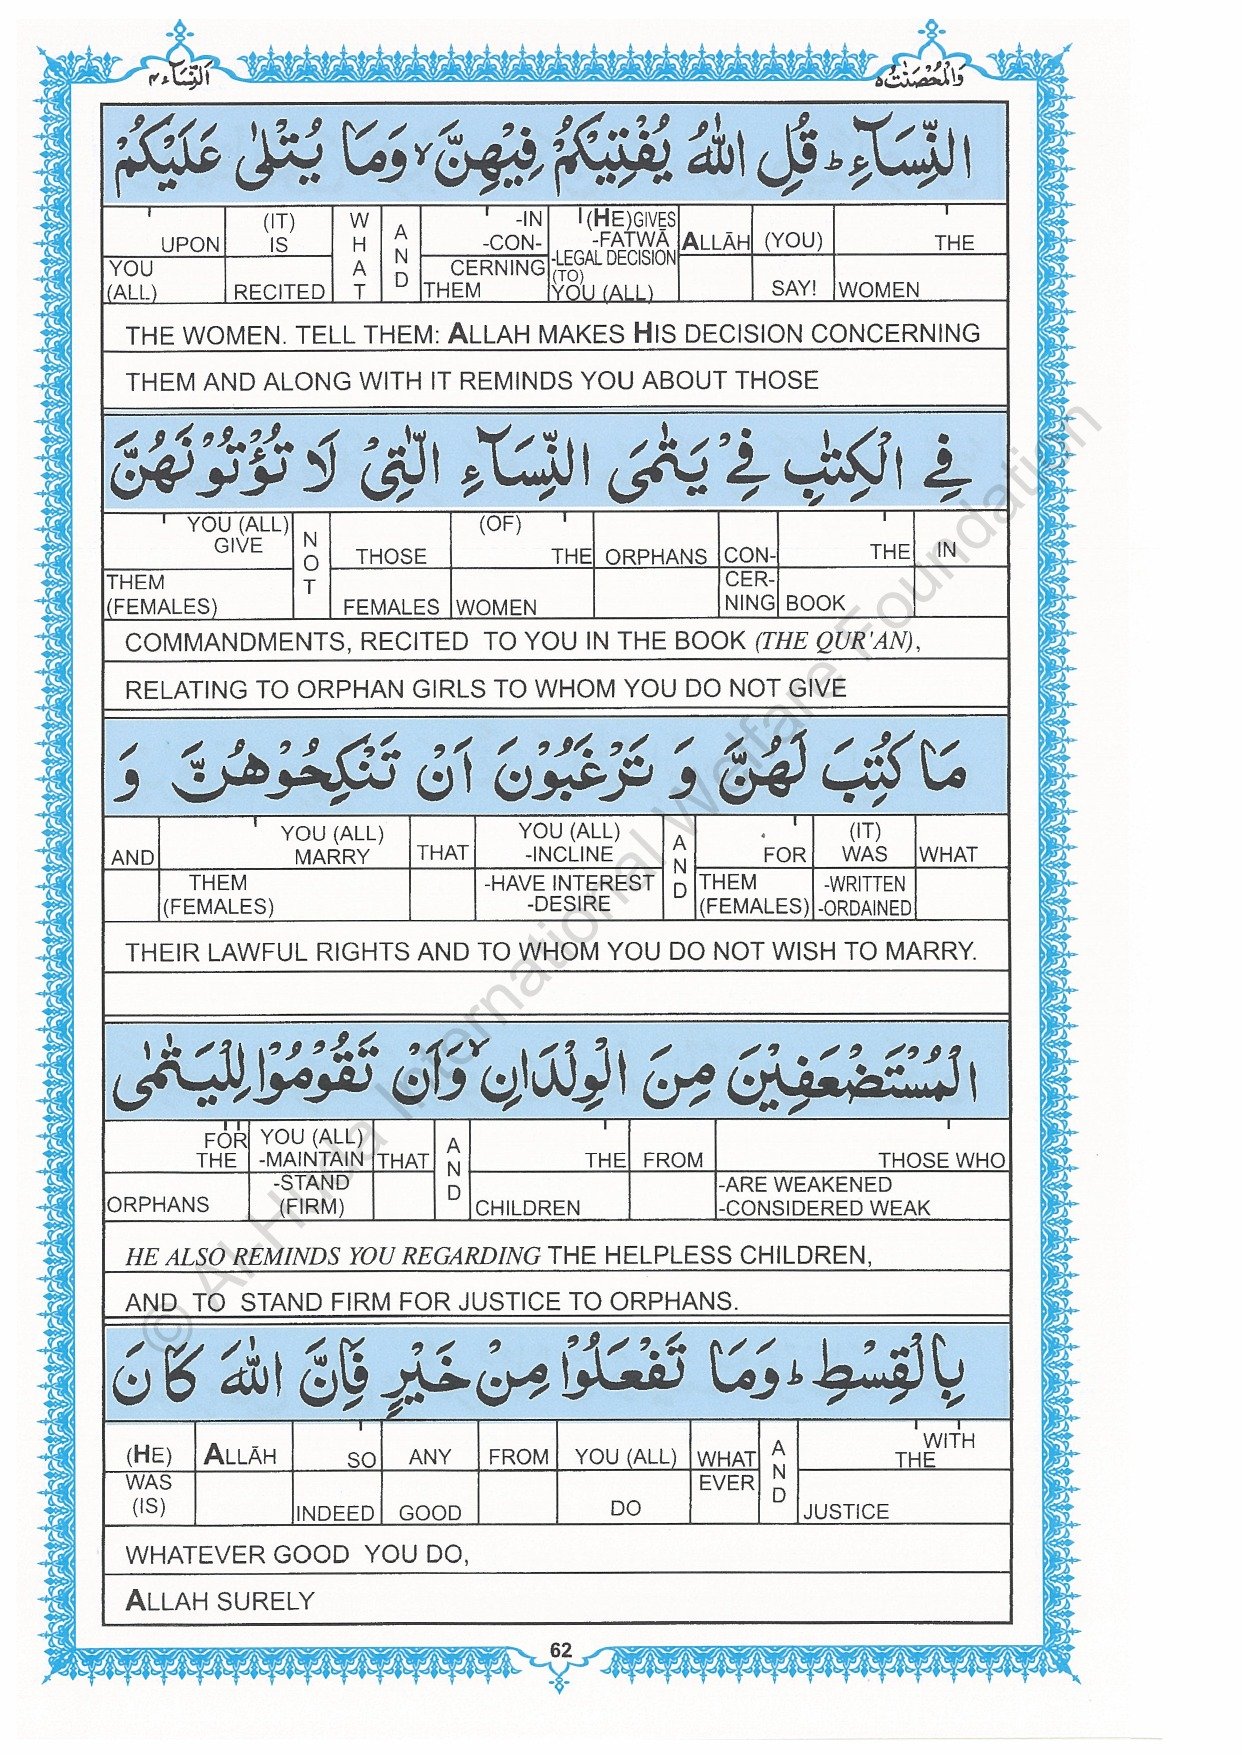 النِّسَآء ٤
وَالْمُحْصَنٰتُ ٥
النِّسَآءِ ؕ قُلِ اللّٰهُ يُفْتِيْكُمْ فِيْهِنَّ ۙ وَمَا يُتْلٰى عَلَيْكُمْ
UPON (IT) IS WHAT AND -IN -CON- (HE)GIVES -FATWĀ -LEGAL DECISION ALLĀH (YOU) THE
YOU (ALL) RECITED CERNING THEM (TO) YOU (ALL) SAY! WOMEN
THE WOMEN. TELL THEM: ALLAH MAKES HIS DECISION CONCERNING
THEM AND ALONG WITH IT REMINDS YOU ABOUT THOSE
فِي الْكِتٰبِ فِيْ يَتٰمَى النِّسَآءِ الّٰتِيْ لَا تُؤْتُوْنَهُنَّ
YOU (ALL) GIVE NOT THOSE (OF) THE ORPHANS CON- THE IN
THEM (FEMALES) FEMALES WOMEN CER- NING BOOK
COMMANDMENTS, RECITED TO YOU IN THE BOOK (THE QUR'AN),
RELATING TO ORPHAN GIRLS TO WHOM YOU DO NOT GIVE
مَا كُتِبَ لَهُنَّ وَ تَرْغَبُوْنَ اَنْ تَنْكِحُوْهُنَّ وَ
AND YOU (ALL) MARRY THAT YOU (ALL) -INCLINE AND FOR (IT) WAS WHAT
THEM (FEMALES) -HAVE INTEREST -DESIRE THEM (FEMALES) -WRITTEN -ORDAINED
THEIR LAWFUL RIGHTS AND TO WHOM YOU DO NOT WISH TO MARRY.
الْمُسْتَضْعَفِيْنَ مِنَ الْوِلْدَانِ ۙ وَاَنْ تَقُوْمُوْا لِلْيَتٰمٰى
FOR THE YOU (ALL) -MAINTAIN THAT AND THE FROM THOSE WHO
ORPHANS -STAND (FIRM) CHILDREN -ARE WEAKENED -CONSIDERED WEAK
HE ALSO REMINDS YOU REGARDING THE HELPLESS CHILDREN,
AND TO STAND FIRM FOR JUSTICE TO ORPHANS.
بِالْقِسْطِ ؕ وَمَا تَفْعَلُوْا مِنْ خَيْرٍ فَاِنَّ اللّٰهَ كَانَ
(HE) ALLĀH SO ANY FROM YOU (ALL) WHAT AND WITH THE
WAS (IS) INDEED GOOD DO EVER JUSTICE
WHATEVER GOOD YOU DO,
ALLAH SURELY
62
© Al-Huda International Welfare Foundation